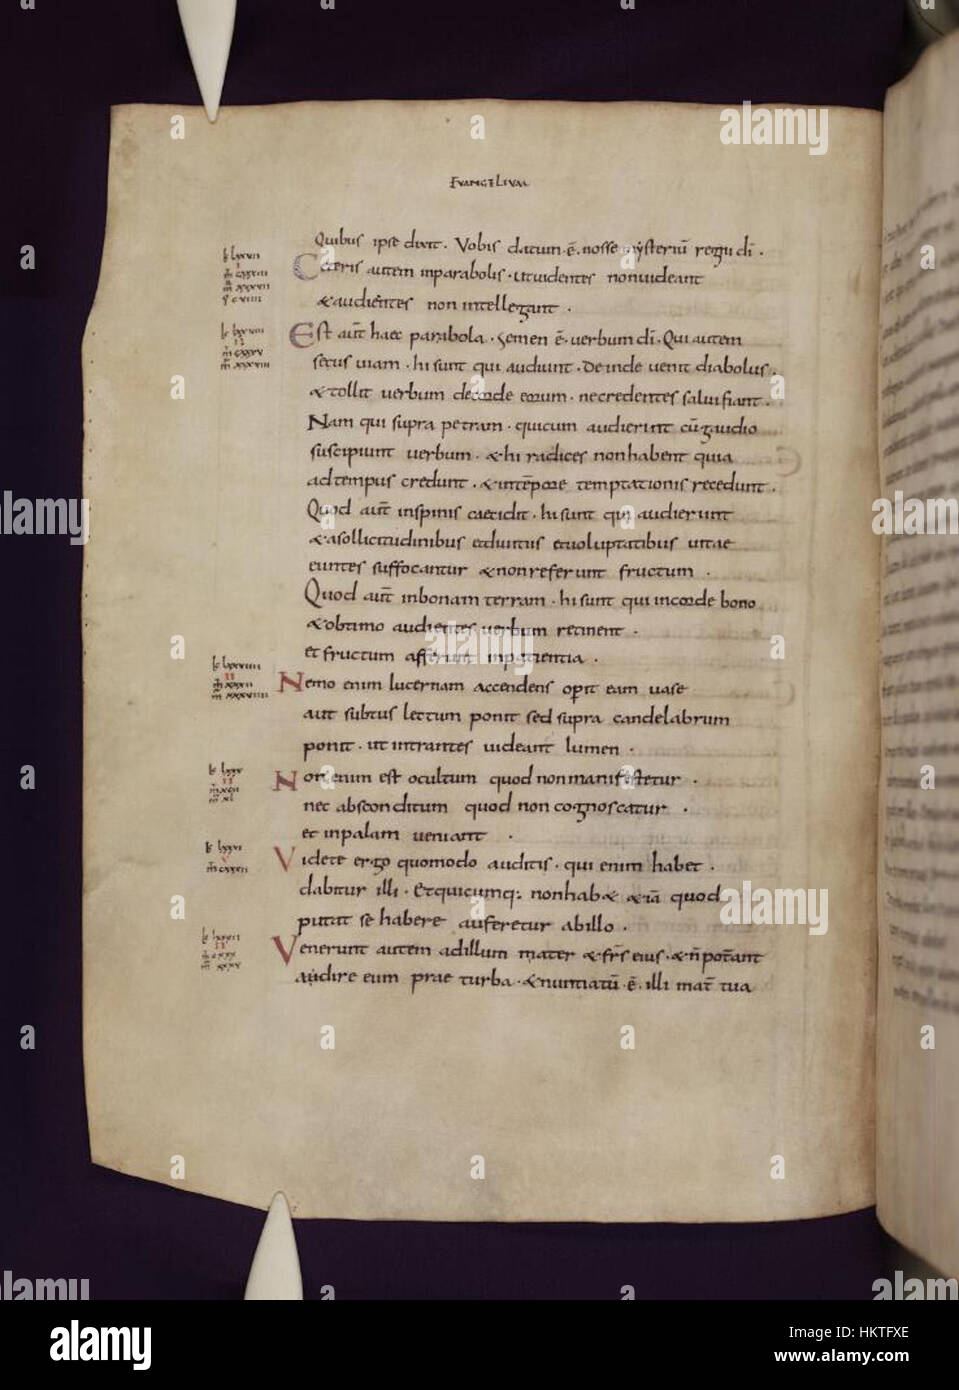 EVANGELIUM
Quibus ipse dixit. Vobis datum. ē. nosse mysteriū regni dī.
Ceteris autem inparabolis. utuidentes nonuideant
&audientes non intellegant.
Est aut̄ haec parabola. Semen ē. verbum dī. Qui autem
secus uiam. hi sunt qui audiunt. deinde uenit diabolus.
&tollit verbum decorde eorum. necredentes saluifiant.
Nam qui supra petram. quicum audierint cū gaudio
suscipiunt uerbum. &hi radices nonhabent quia
adtempus credunt. &intēpore temptationis recedunt.
Quod aut̄ inspinis caecidit. hi sunt qui audierunt
&asollicitudinibus etdiuitiis etuoluptatibus uitae
euntes suffocantur &nonreferunt fructum.
Quod aut̄ inbonam terram. hi sunt qui incorde bono
&obtimo audientes uerbum retinent.
et fructum afferunt inpatientia.
Nemo enim lucernam accendens operit eam uase
aut subtus lectum ponit sed supra candelabrum
ponit. ut intrantes uideant lumen.
Non enim est ocultum quod nonmanifestetur.
nec absconditum quod non cognoscatur.
et inpalam ueniant.
Videte ergo quomodo auditis. qui enim habet.
dabitur illi. Etquicumq: nonhab& &iā quod
putat se habere auferetur abillo.
Venerunt autem adillum mater &frs̄ eius. &n̄ poterant
audire eum prae turba. &nuntiatū. ē. illi mat̄ tua
alamy
Image ID: HKTFXE
www.alamy.com